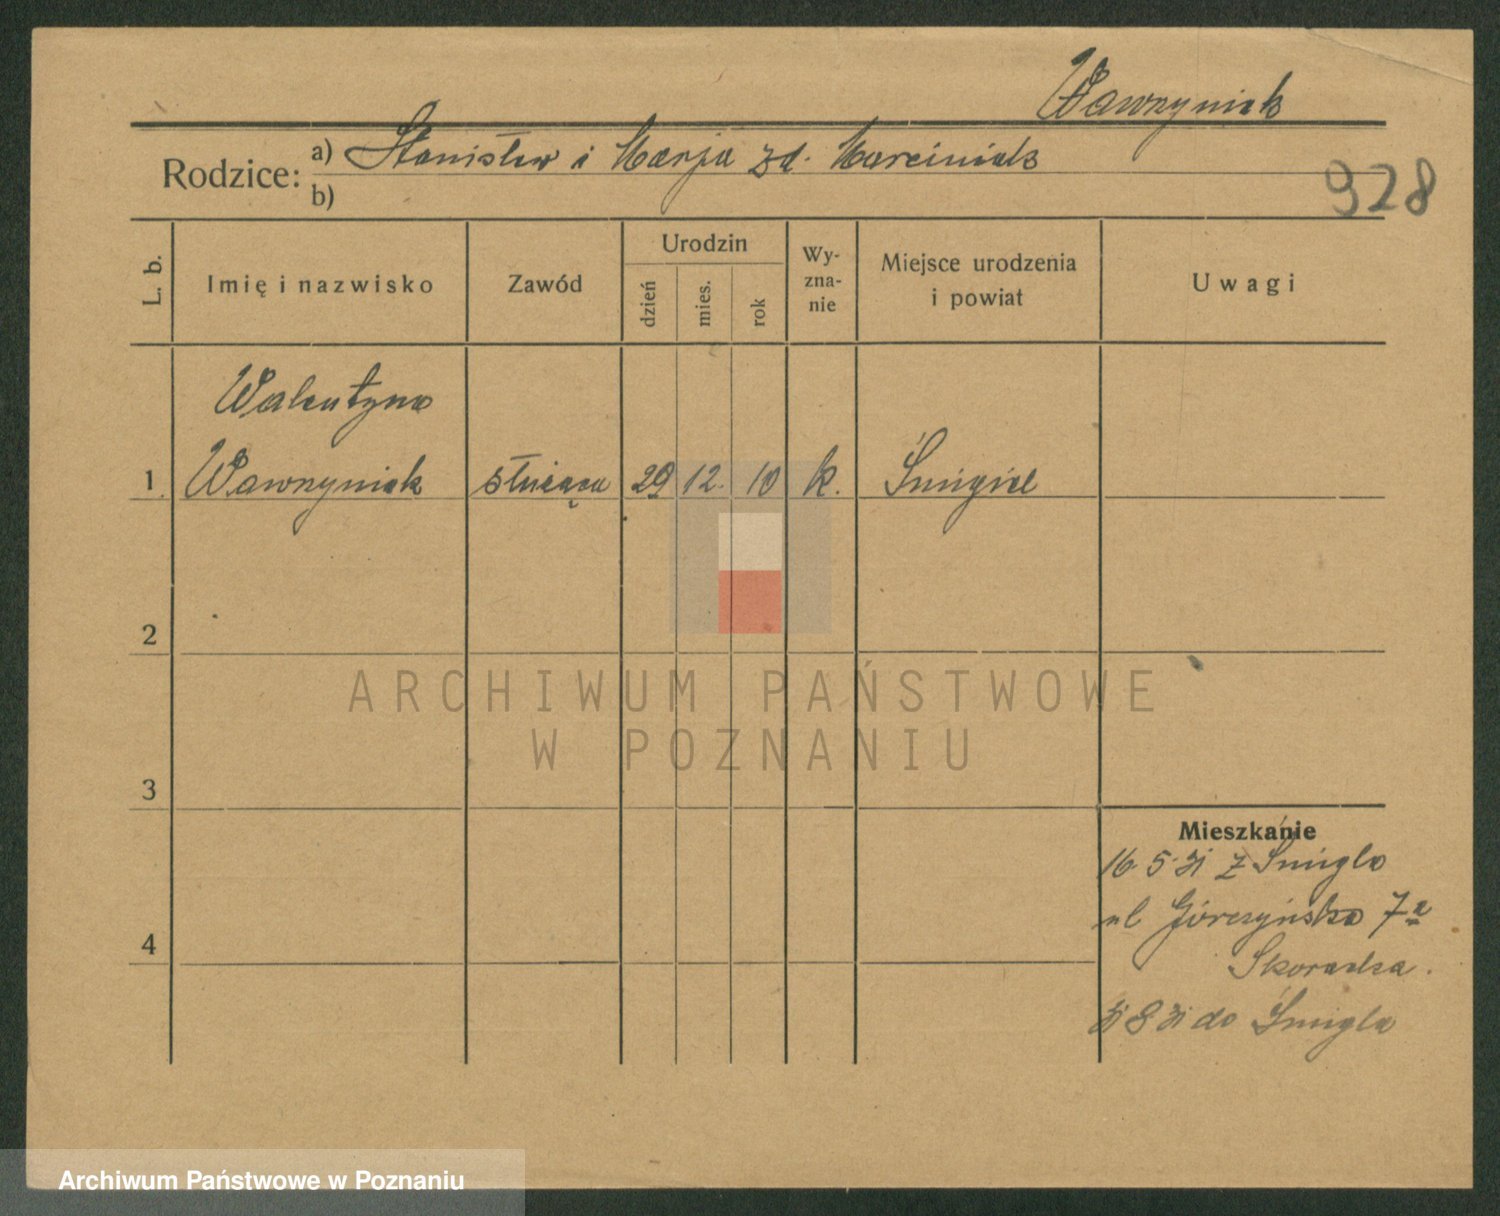 Wawrzyniak
Rodzice: a) Stanisław i Marja zd. Marciniak
b)
928
L. b.
Imię i nazwisko
Zawód
Urodzin
dzień
mies.
rok
Wy-
zna-
nie
Miejsce urodzenia
i powiat
Uwagi
Walentyna
1 Wawrzyniak służąca 29 12. 10 k. Śmigiel
2
ARCHIWUM PAŃSTWOWE
W POZNANIU
3
Mieszkanie
16 5 31 z Śmigla
ul Górczyńska 7a
4
31 8 31 do Śmigla
Archiwum Państwowe w Poznaniu